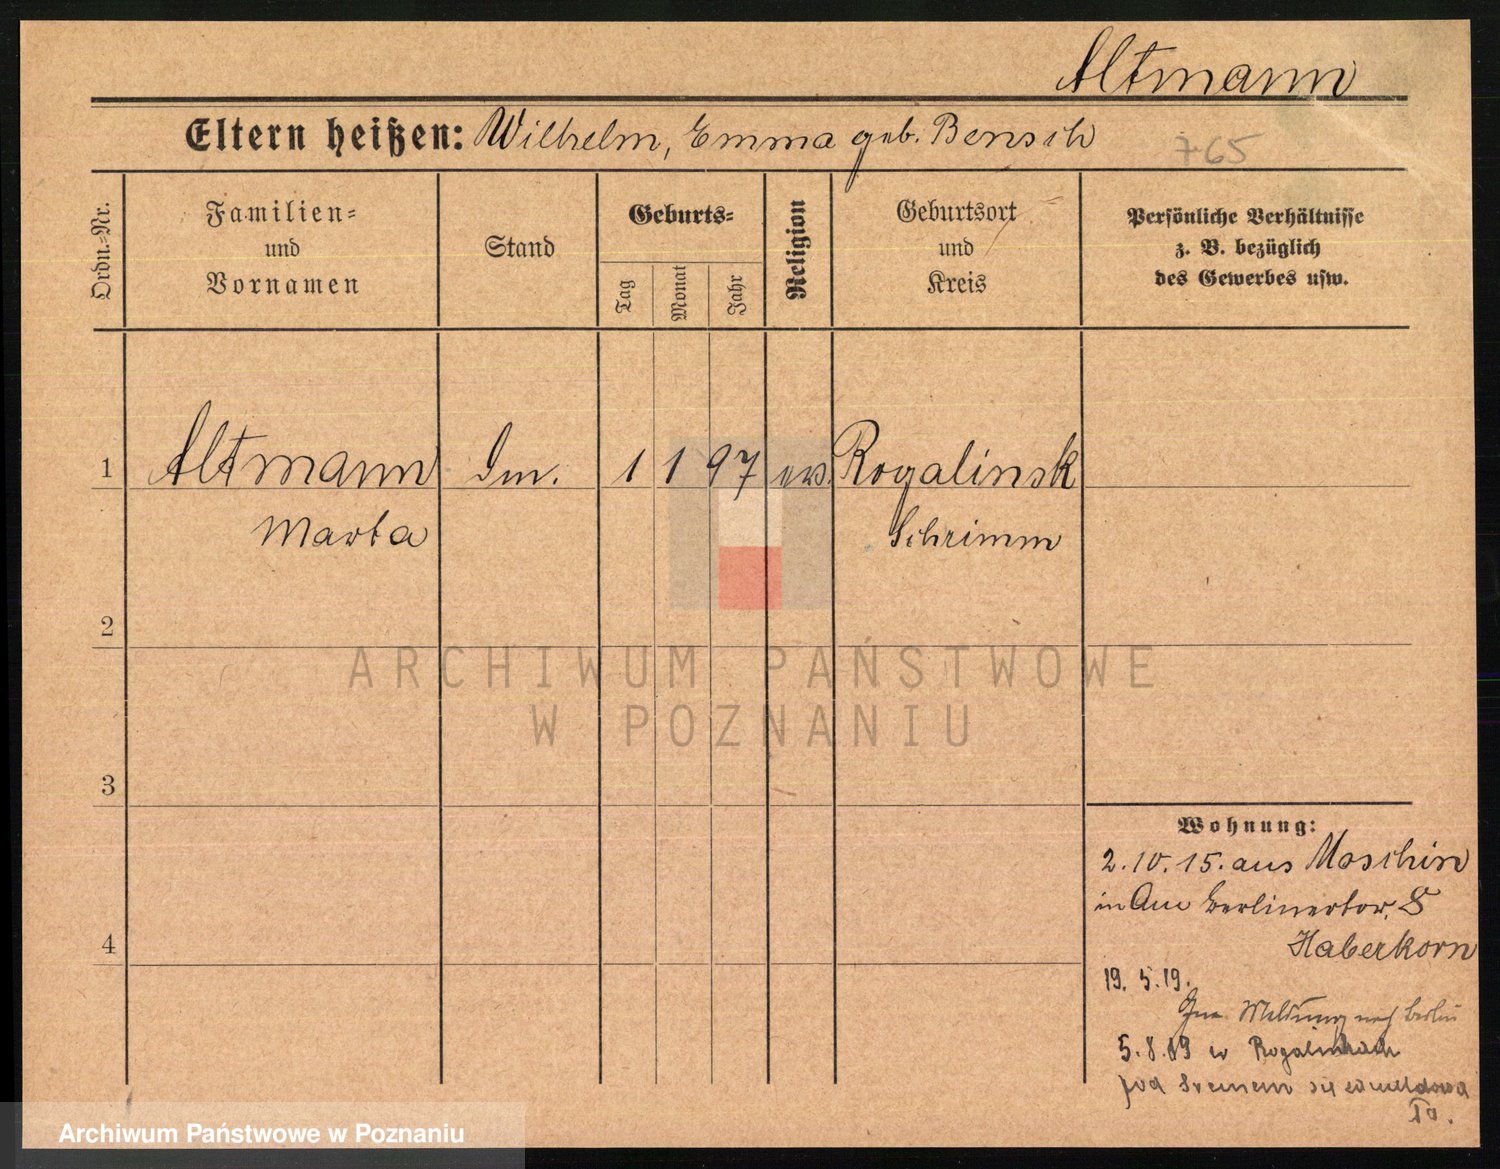 Altmann
Eltern heißen: Wilhelm, Emma geb. Bensch
765
Ordn.-Nr.
Familien-
und
Vornamen
Stand
Geburts-
Tag
Monat
Jahr
Religion
Geburtsort
und
Kreis
Persönliche Verhältnisse
z. B. bezüglich
des Gewerbes usw.
1 Altmann 1 1 97 ev. Rogalinsk
Marta Schrimm
2
3
4
Wohnung:
2.10.15. aus Moschin
in Am Berlinertor. 8
Haberkorn
19. 5. 19.
Meldung nach Berlin
5.8.19 w
pod Śremem się
ARCHIWUM PAŃSTWOWE
W POZNANIU
Archiwum Państwowe w Poznaniu